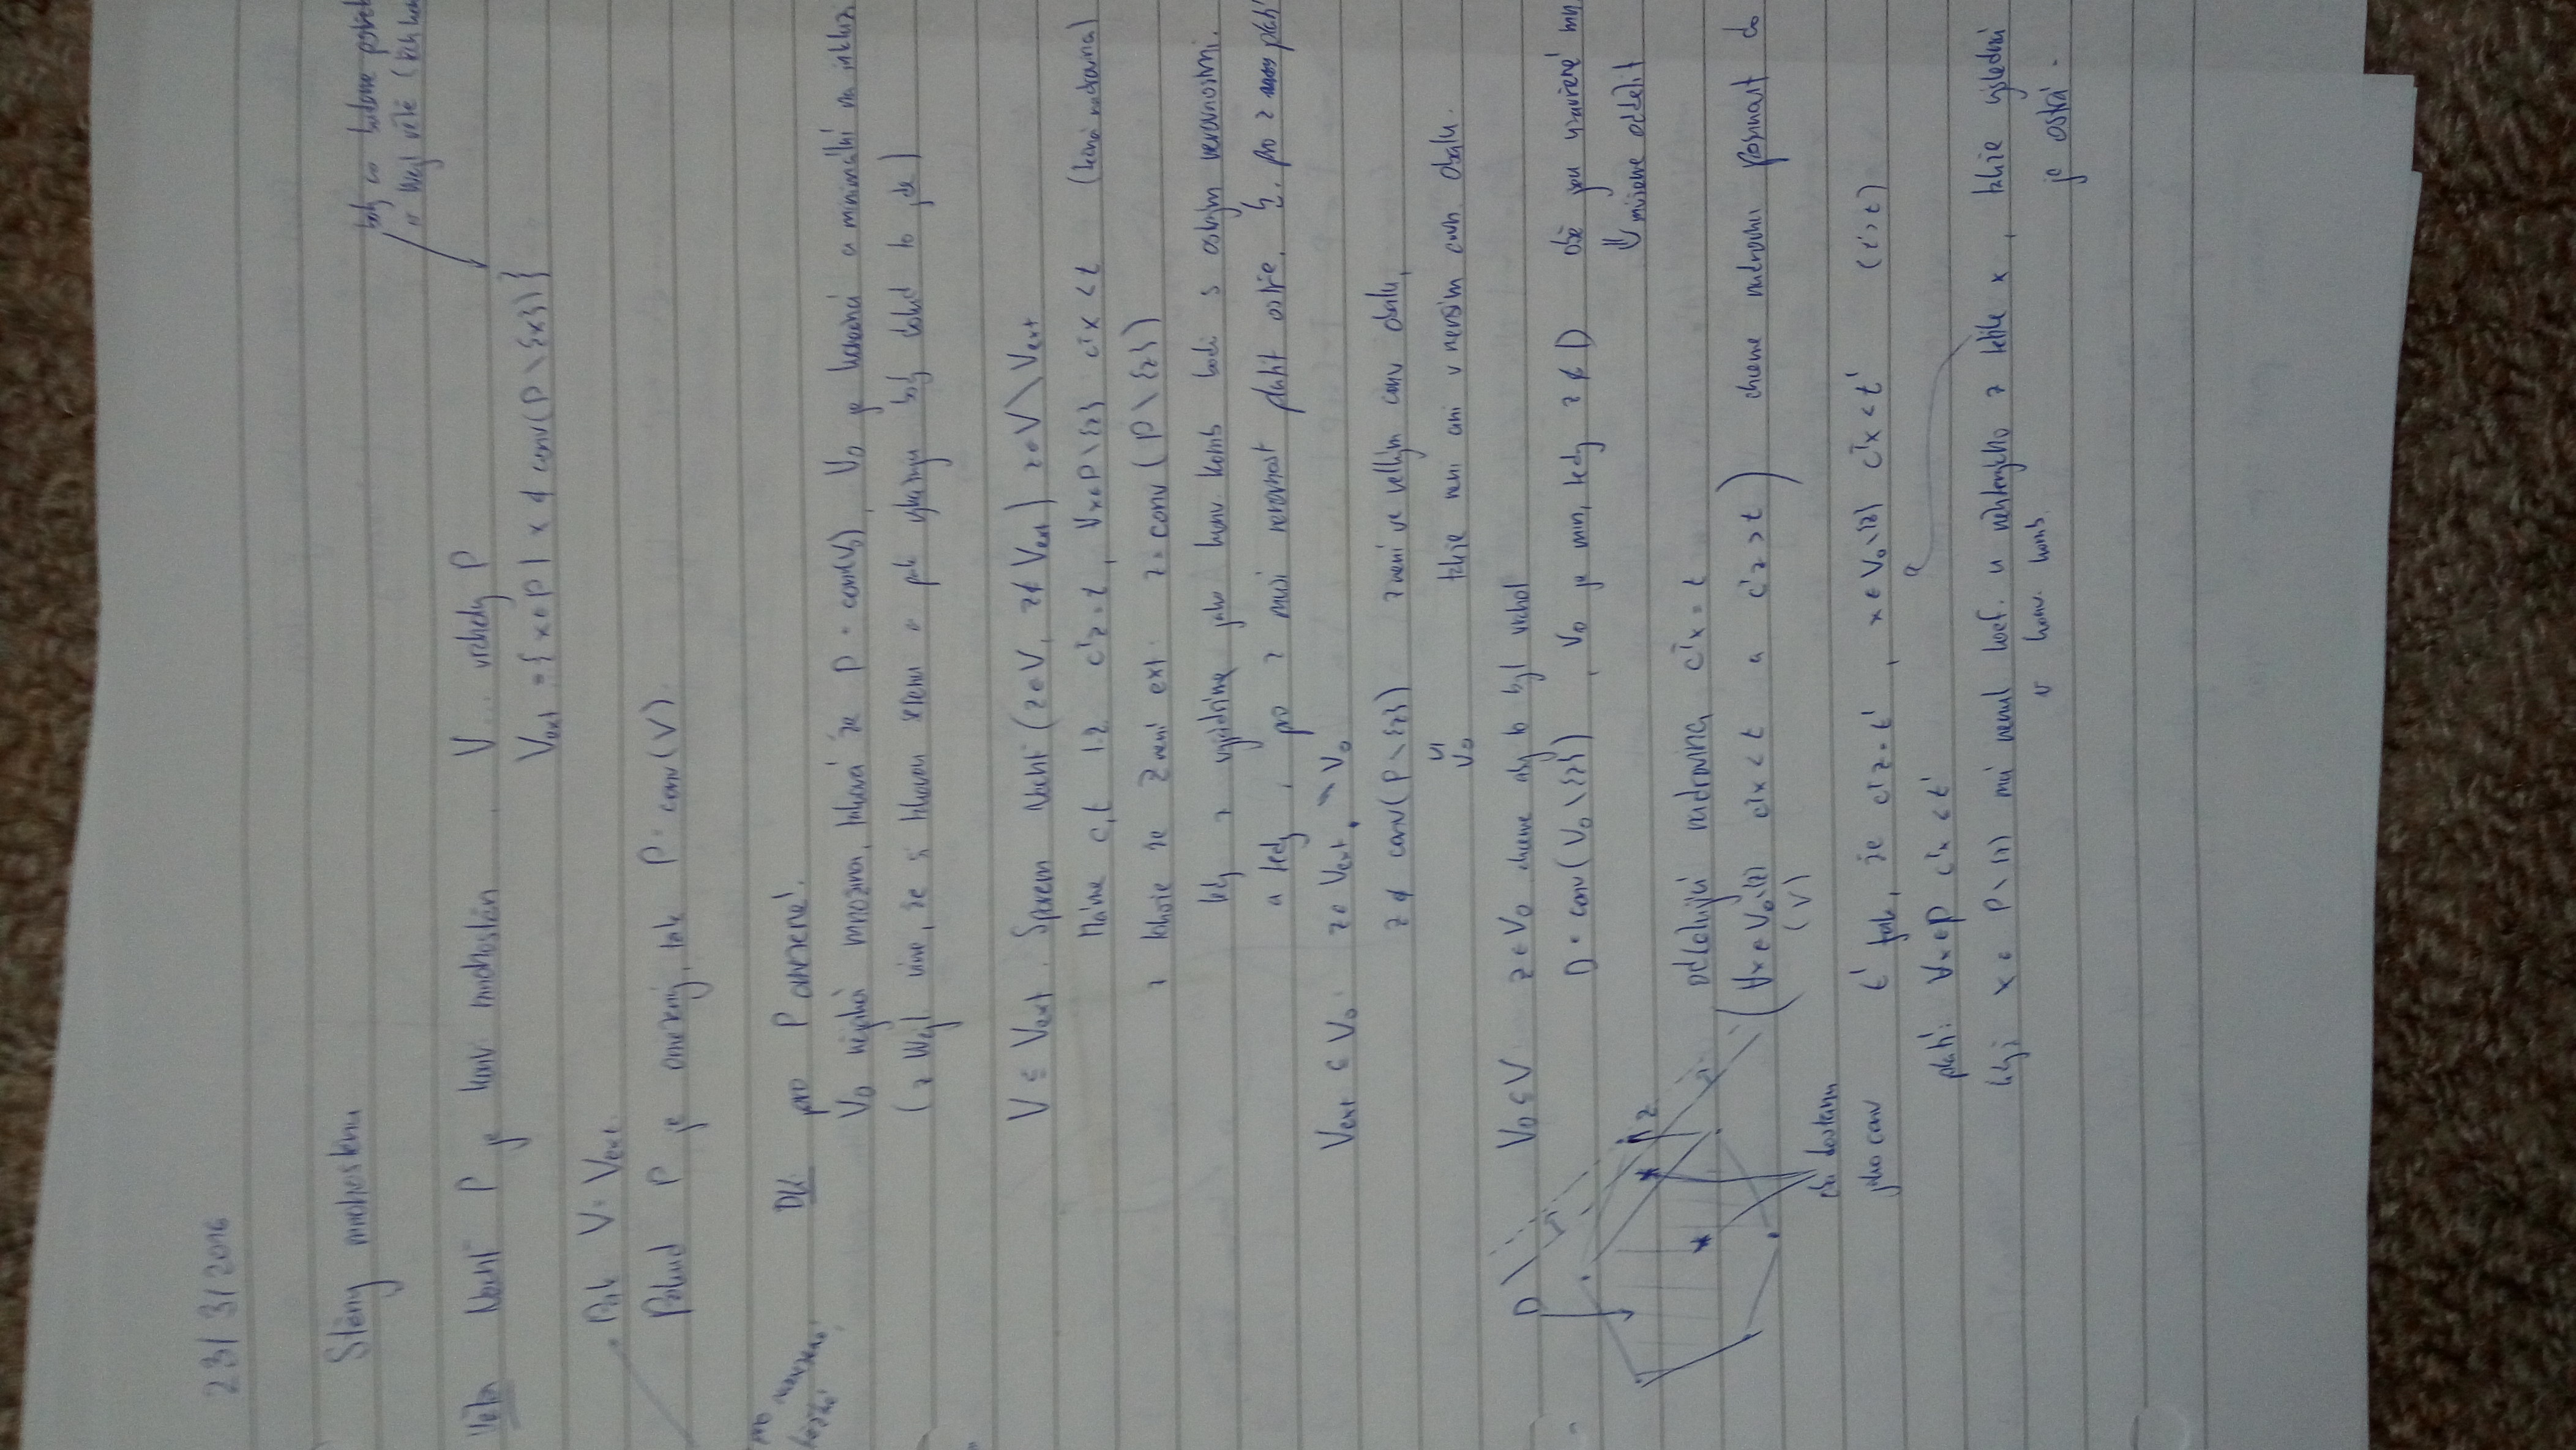 23/3/2016
Stěny mnohostěnu
body co budeme
v Weyl větě
Věta Nechť P je konv. mnohostěn. V... vrcholy P
V_ext = {x ∈ P | x ∉ conv(P \ {x})}
Pak V = V_ext.
Pokud P je omezený, tak P = conv(V)
pro neomezené
těžké
Dk: pro P omezené.
V₀ nějaká množina, taková že P = conv(V₀), V₀ je konečná a minimální na inkluzi
(z Weyl víme, že a pak body dokud to jde)
V ⊆ V_ext. Sporem Nechť (z ∈ V, z ∉ V_ext) z ∈ V \ V_ext
Máme c,t t.ž. cᵀz = t, ∀x ∈ P \ {z} cᵀx < t
z tohoto že z není ext: z ∈ conv(P \ {z})
tedy z vyjádříme jako konv. komb bodů s ostrým nerovnostmi.
a tedy, pro z musí nerovnost platit ostře. ↯. pro z platí
V_ext ⊆ V₀: z ∈ V_ext \ V₀
z ∉ conv(P \ {z}) z není ve velkým conv obalu,
⊆
V₀ takže není ani v menším conv. obalu.
D V₀ ⊆ V z ∈ V₀ chceme aby to byl vrchol
D = conv(V₀ \ {z}), V₀ je min, tedy z ∉ D obě jsou uzavřené mn
⇓ můžeme oddělit
z
oddělující nadrovina cᵀx = t
(∀x ∈ V₀ \ {z} cᵀx < t a cᵀz > t) chceme nadrovinu posunout do
(V)
dostanu
jako conv
t' tak, že cᵀz = t', x ∈ V₀ \ {z} cᵀx < t' (t' > t)
platí: ∀x ∈ P cᵀx < t'
když x ∈ P \ {z} má nenul koef. u některýho z těhle x, takže výsledná
v konv. komb.
je ostrá.